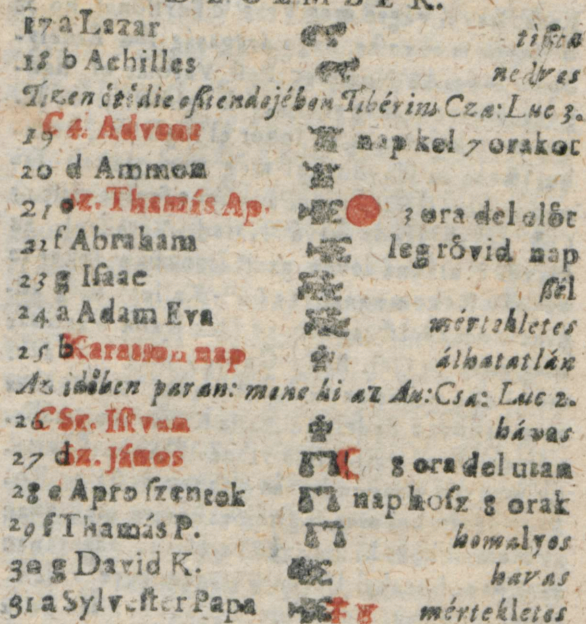 DECEMBER.
17 a Lazar tiſzta
18 b Achilles nedves
Tizen ötödie eſztendejében Tibérius Czæ: Luc 3.
19 C 4. Advent nap kel 7 orakor
20 d Ammon
21 e sz. Thamás Ap. 3 ora del elôt
22 f Abraham leg rôvid nap
23 g Iſaac ſzél
24 a Adam Eva mértekletes
25 b Karatson nap álhatatlán
Az idôben paran: mene ki az Au: Csa: Luc 2.
26 C Sz. Iſtvan hávas
27 d sz. János 8 ora del utan
28 e Apro ſzentek nap hoſz 8 orak
29 f Thamás P. homalyos
30 g David K. havas
31 a Sylveſter Papa mértekletes